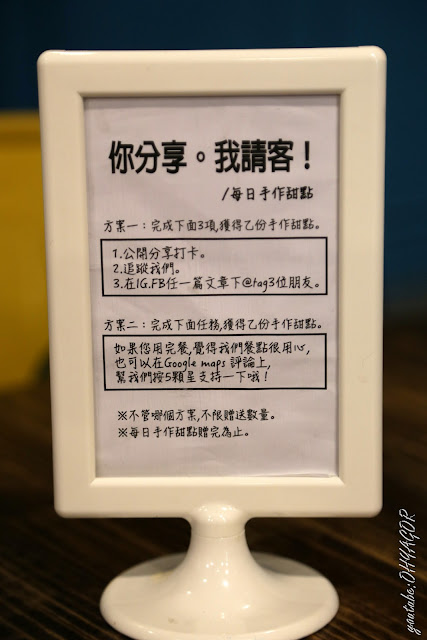 你分享。我請客！
/每日手作甜點
方案一：完成下面3項,獲得乙份手作甜點。
1.公開分享打卡。
2.追蹤我們。
3.在IG.FB任一篇文章下@tag3位朋友。
方案二：完成下面任務,獲得乙份手作甜點。
如果您用完餐,覺得我們餐點很用心,
也可以在Google maps 評論上,
幫我們按5顆星支持一下哦！
※不管哪個方案,不限贈送數量。
※每日手作甜點贈完為止。
youtube:OHYAGOR